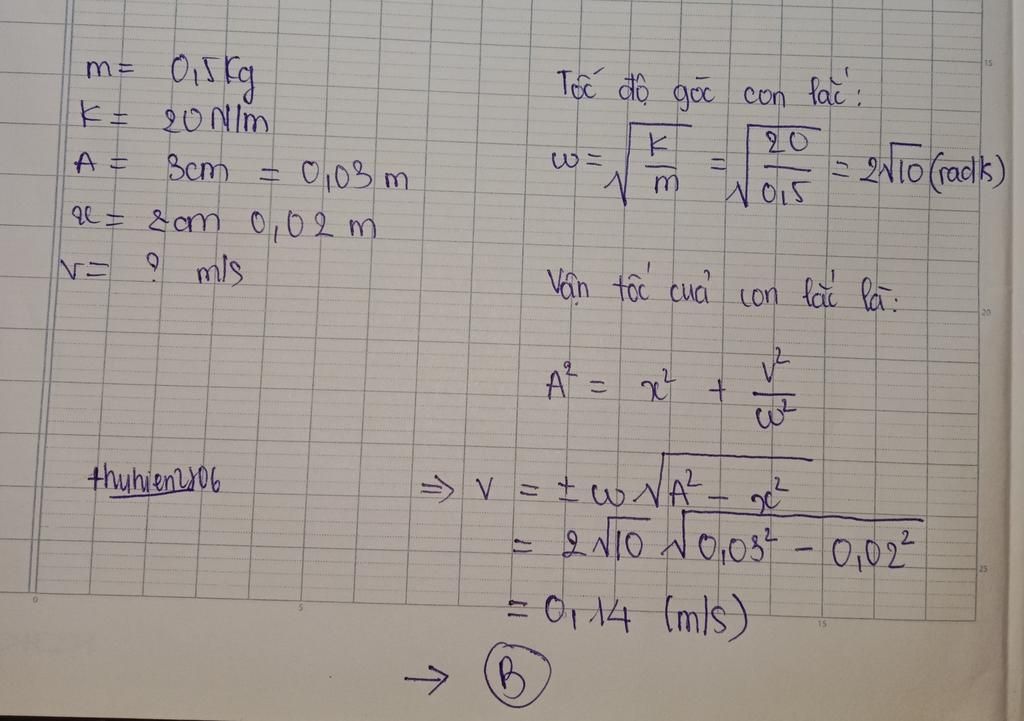 m = 0,5 Kg
K = 20 N/m
A = 3cm = 0,03 m
x = 2cm 0,02 m
v = ? m/s
thuhien2106
Tốc độ góc con lắc:
ω = √(K/m) = √(20/0,5) = 2√10 (rad/s)
Vận tốc của con lắc là:
A² = x² + v²/ω²
⇒ v = ± ω √(A² − x²)
= 2√10 √(0,03² − 0,02²)
= 0,14 (m/s)
→ B
15
20
25
0
5
15